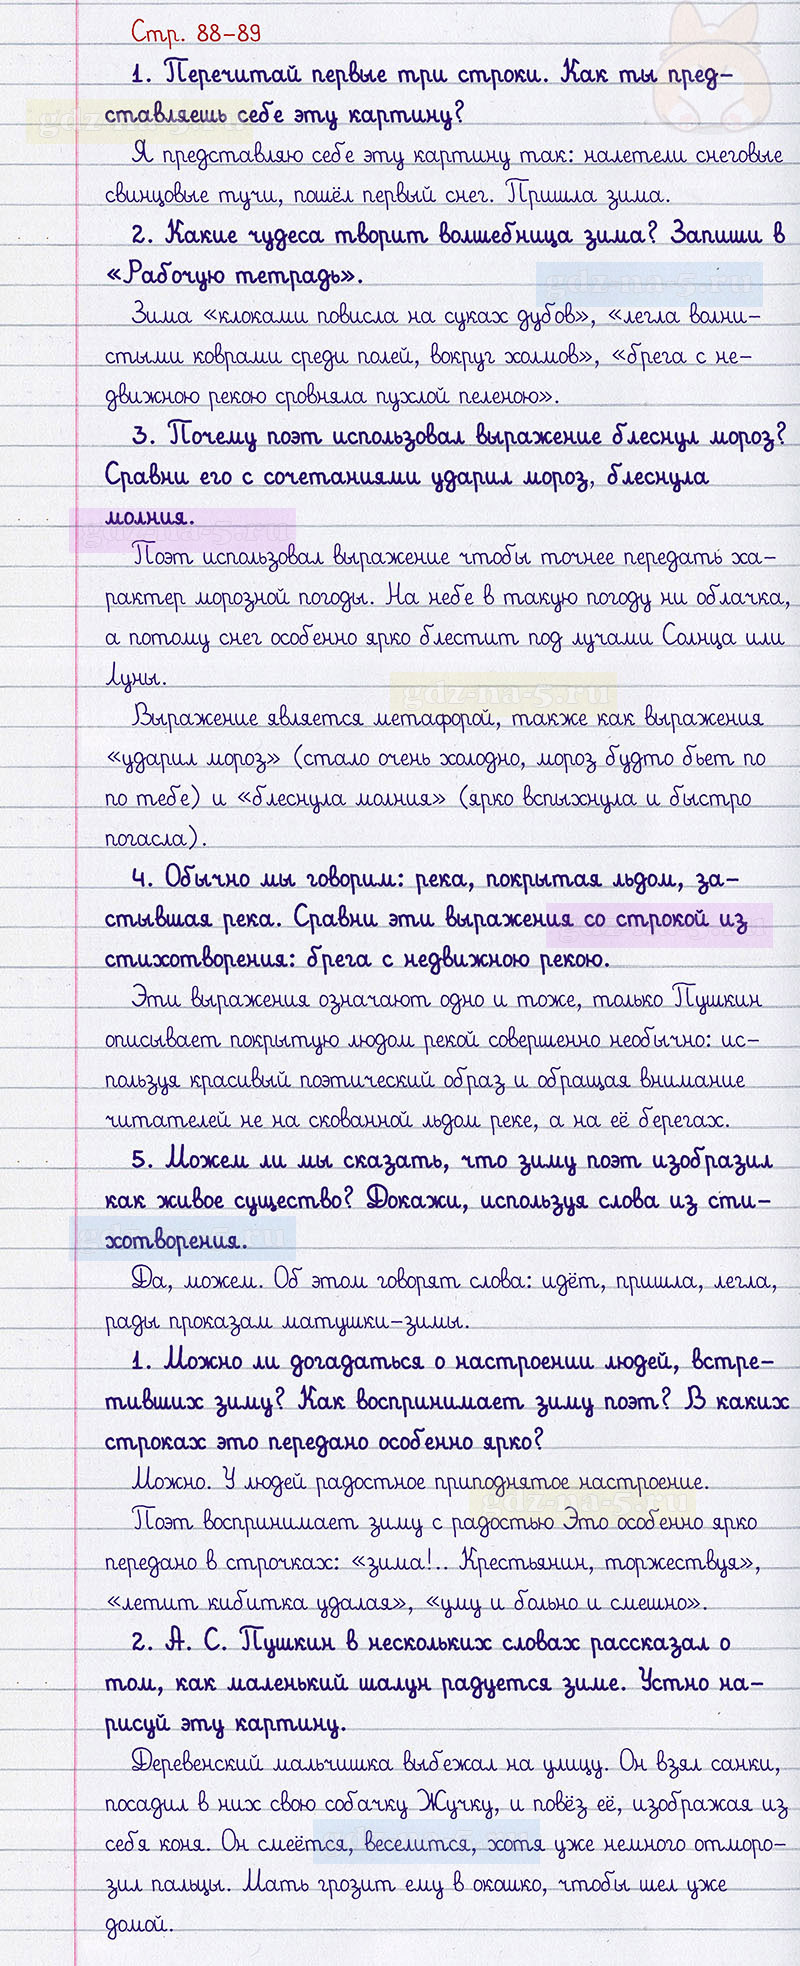 Стр. 88-89
1. Перечитай первые три строки. Как ты пред-
ставляешь себе эту картину?
gdz-na-5.ru
Я представляю себе эту картину так: налетели снеговые
свинцовые тучи, пошёл первый снег. Пришла зима.
2. Какие чудеса творит волшебница зима? Запиши в
«Рабочую тетрадь».
gdz-na-5.ru
Зима «клоками повисла на суках дубов», «легла волни-
стыми коврами среди полей, вокруг холмов», «брега с не-
движною рекою сровняла пухлой пеленою».
3. Почему поэт использовал выражение блеснул мороз?
Сравни его с сочетаниями ударил мороз, блеснула
молния.
gdz-na-5.ru
Поэт использовал выражение чтобы точнее передать ха-
рактер морозной погоды. На небе в такую погоду ни облачка,
а потому снег особенно ярко блестит под лучами Солнца или
Луны.
gdz-na-5.ru
Выражение является метафорой, также как выражения
«ударил мороз» (стало очень холодно, мороз будто бьет по
по тебе) и «блеснула молния» (ярко вспыхнула и быстро
погасла).
4. Обычно мы говорим: река, покрытая льдом, за-
стывшая река. Сравни эти выражения со строкой из
gdz-na-5.ru
стихотворения: брега с недвижною рекою.
Эти выражения означают одно и тоже, только Пушкин
описывает покрытую людом рекой совершенно необычно: ис-
пользуя красивый поэтический образ и обращая внимание
читателей не на скованной льдом реке, а на её берегах.
5. Можем ли мы сказать, что зиму поэт изобразил
как живое существо? Докажи, используя слова из сти-
хотворения.
gdz-na-5.ru
Да, можем. Об этом говорят слова: идёт, пришла, легла,
рады проказам матушки-зимы.
1. Можно ли догадаться о настроении людей, встре-
тивших зиму? Как воспринимает зиму поэт? В каких
строках это передано особенно ярко?
Можно. У людей радостное приподнятое настроение.
gdz-na-5.ru
Поэт воспринимает зиму с радостью Это особенно ярко
передано в строчках: «зима!.. Крестьянин, торжествуя»,
«летит кибитка удалая», «уму и больно и смешно».
2. А. С. Пушкин в нескольких словах рассказал о
том, как маленький шалун радуется зиме. Устно на-
рисуй эту картину.
Деревенский мальчишка выбежал на улицу. Он взял санки,
посадил в них свою собачку Жучку, и повёз её, изображая из
себя коня. Он смеётся, веселится, хотя уже немного отморо-
зил пальцы. Мать грозит ему в окошко, чтобы шел уже
домой.